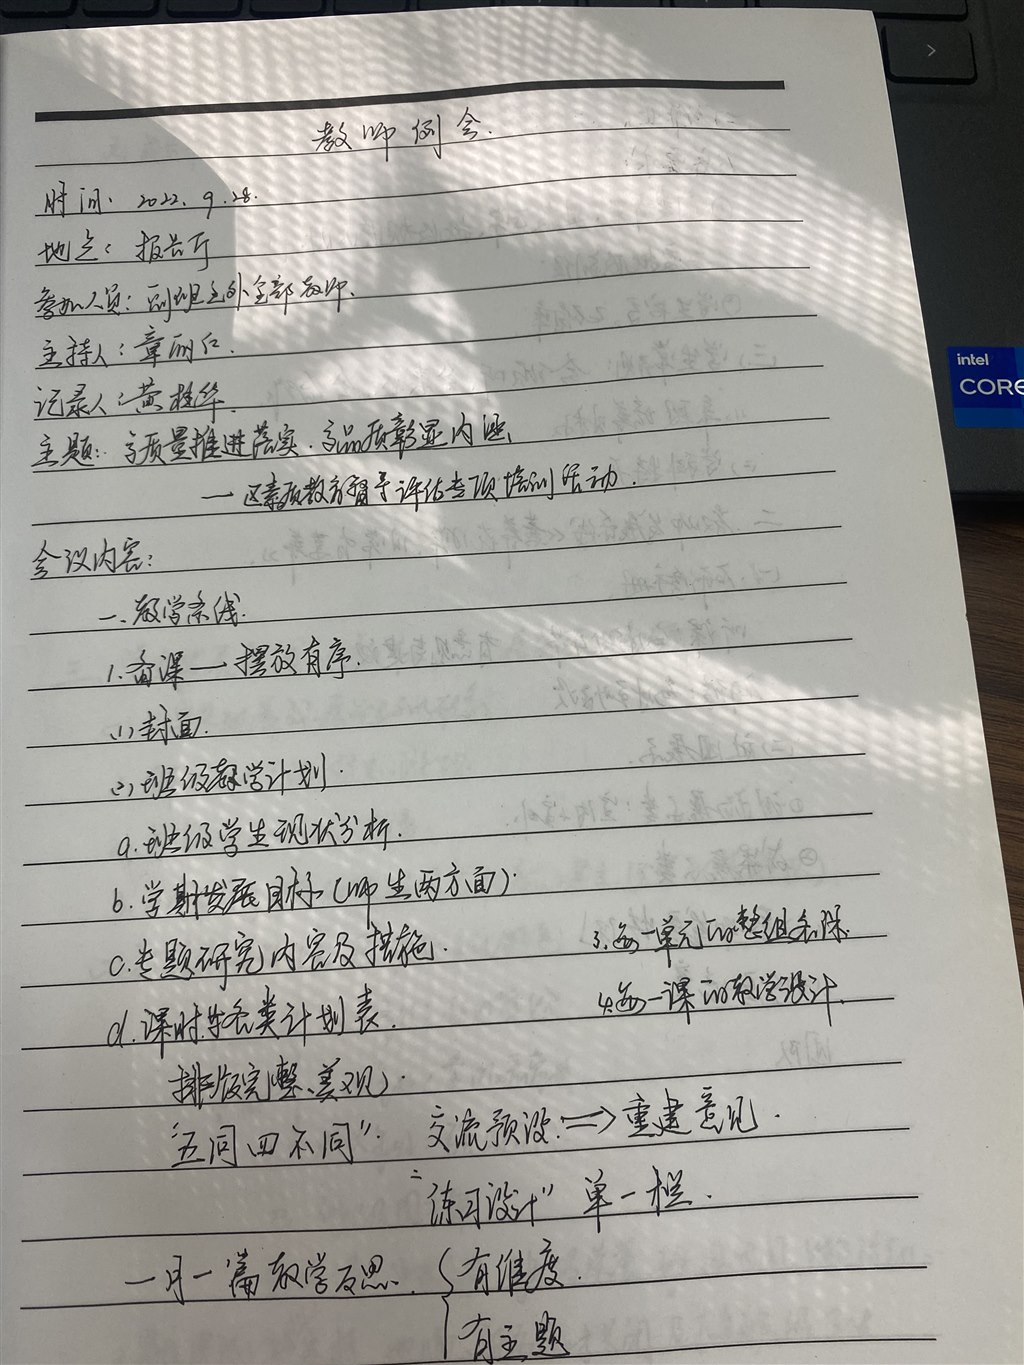 教师例会.
时间: 2022.9.28.
地点: 报告厅
参加人员: 副班主外全部教师.
主持人: 章丽红.
记录人: 黄桂华.
主题: 高质量推进落实.高品质彰显内涵
——区素质教育督导评估专项培训活动.
会议内容:
一.教学条线.
1.备课——摆放有序.
(1)封面.
(2)班级教学计划.
a.班级学生现状分析.
b.学期发展目标(师生两方面).
c.专题研究内容及措施.
3.每一单元的整组备课.
d.课时与各类计划表.
4.每一课的教学设计.
排版完整、美观)
"五同四不同". 交流预设.⇒重建意见.
"练习设计" 单一栏.
一月一篇教学反思. {有维度.
有主题
intel
CORE